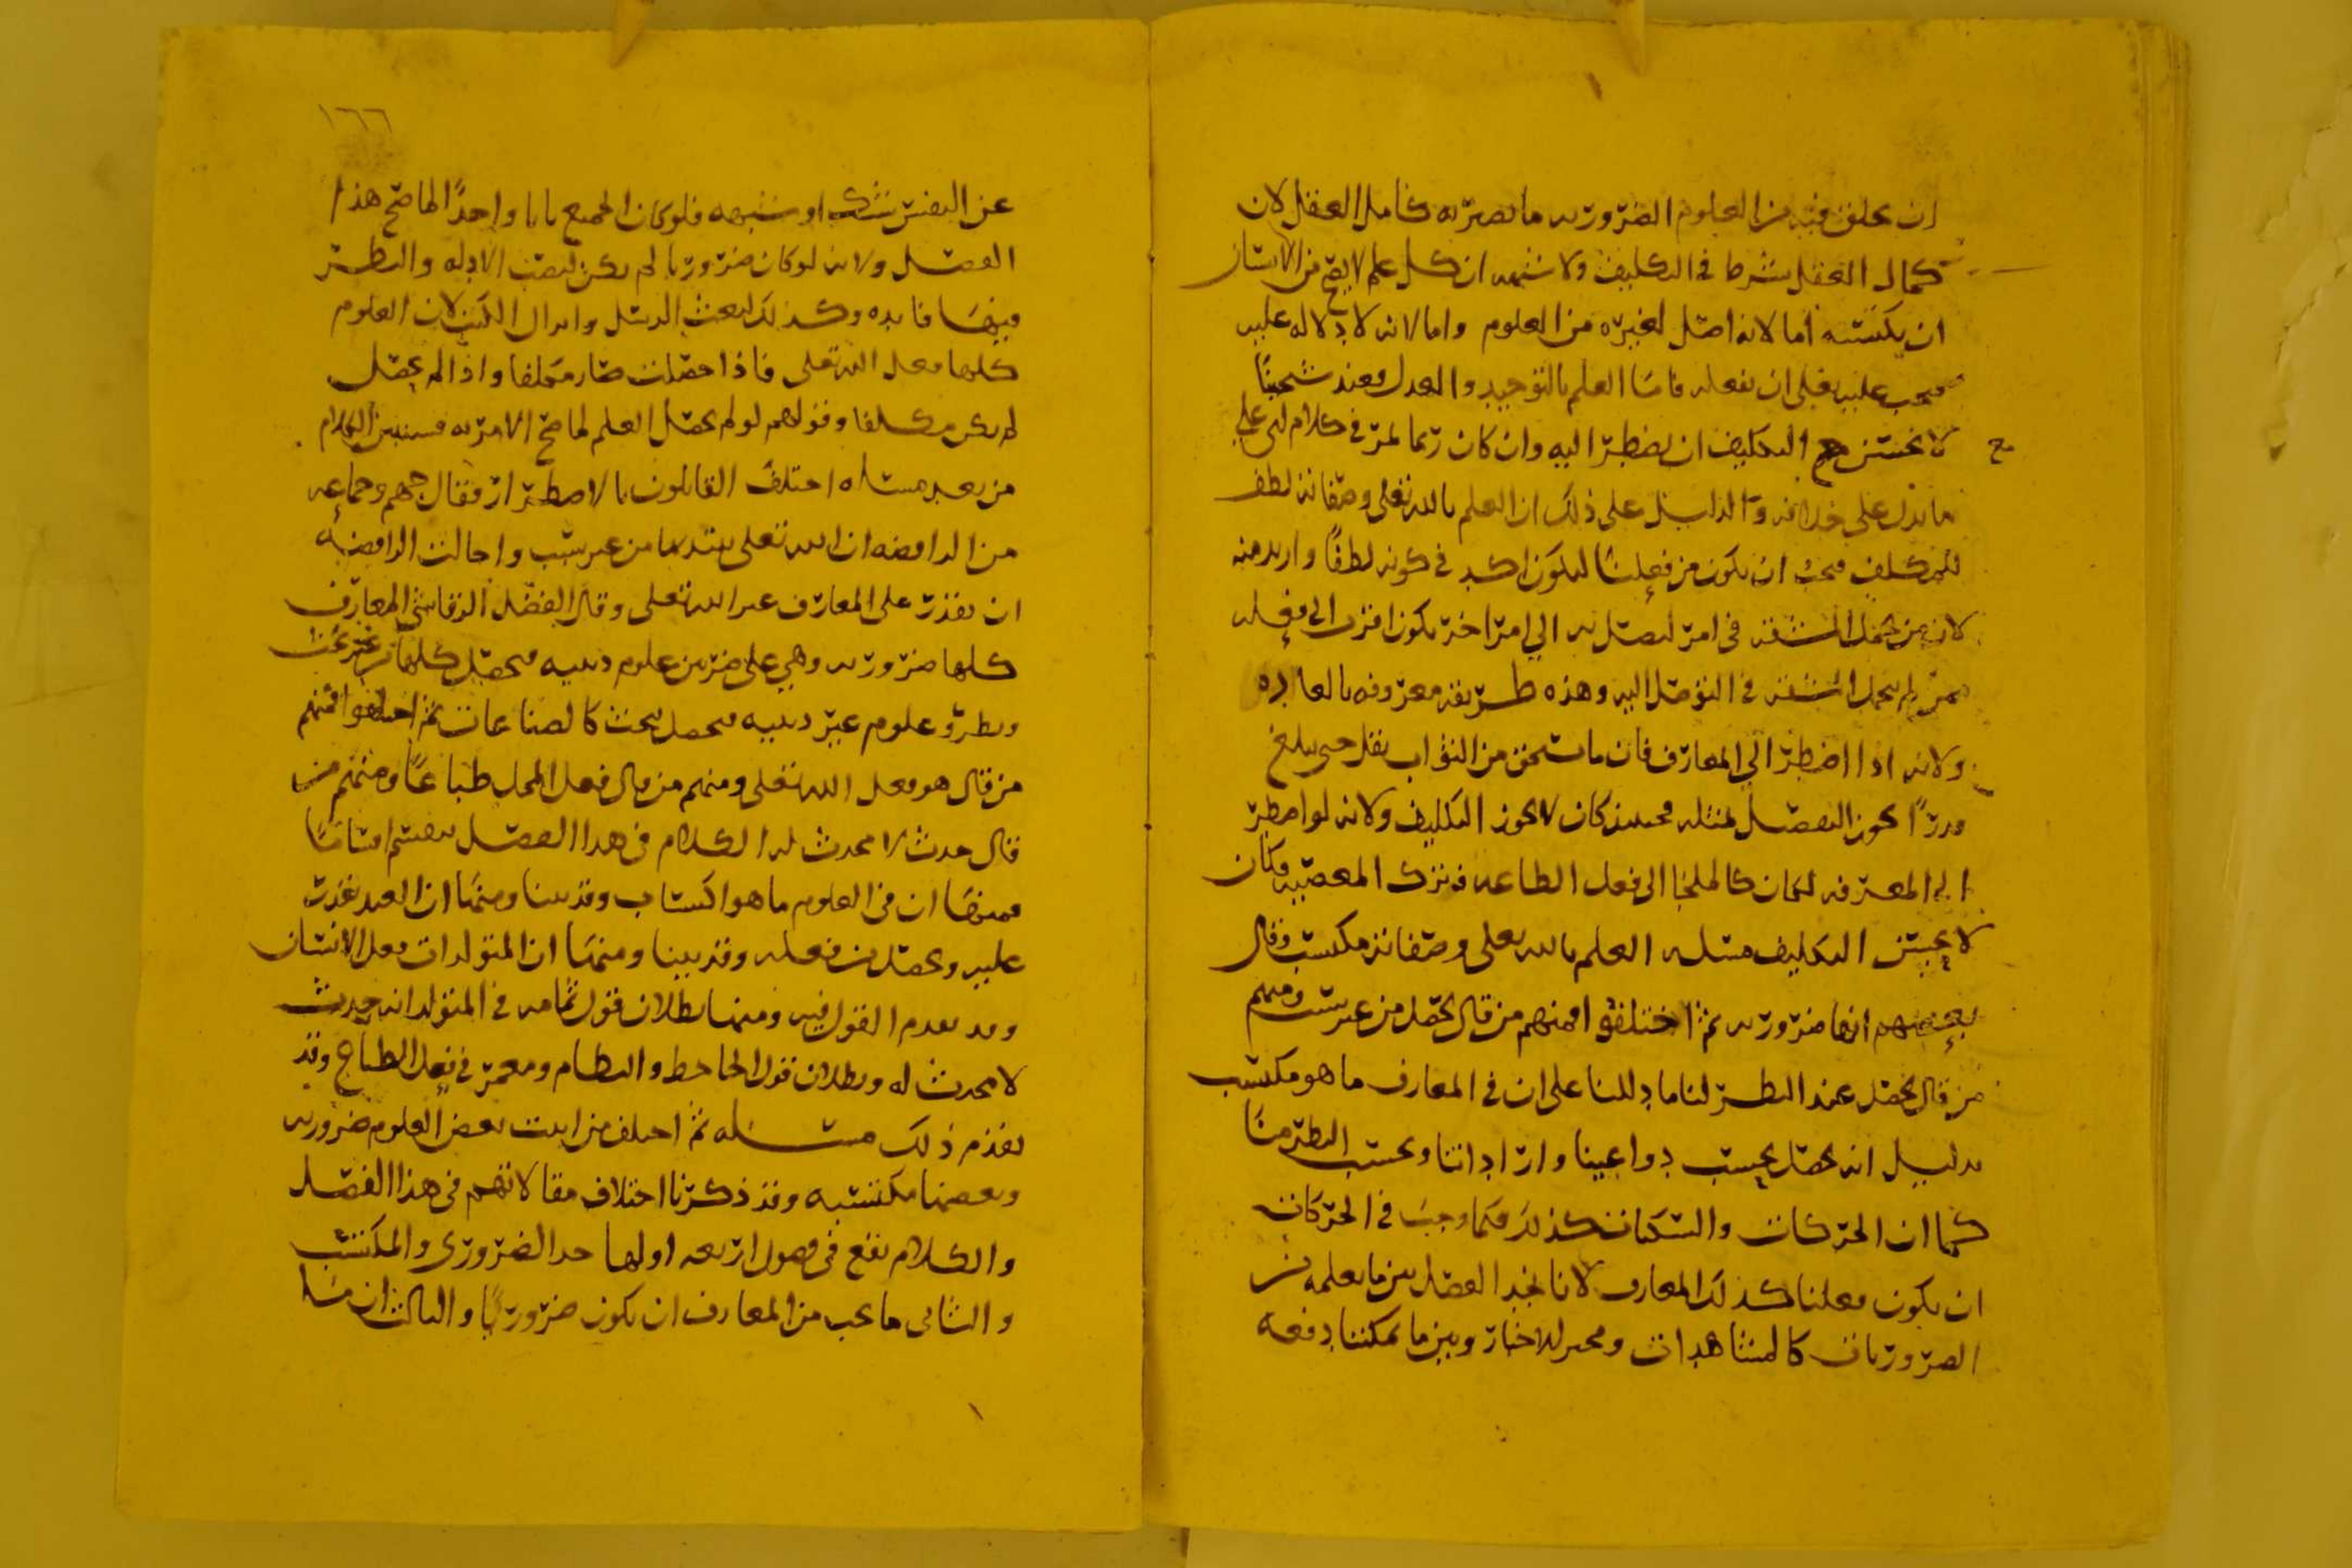 ان يخلق فيه من العلوم الضرورية ما يصير به كامل العقل لان
كمال العقل شرط في التكليف ولا شبهه ان كل علم لا يصح من الانسان
ان يكتسبه اما لانه اصل لغيره من العلوم واما لانه لا دلاله عليه
فيجب عليه تعلى ان يفعله فاما العلم بالتوحيد والعدل فعند شيخينا
لا يحسن مع التكليف ان يضطر اليه وان كان ربما لمر في كلام ابى علي
ما يدل على خلافه والدليل على ذلك ان العلم بالله تعلى وصفاته لطف
للمكلف فيجب ان يكون من فعلنا ليكون اكد في كونه لطفًا واريد منه
لان من تحمل المشقه في امر ليصل به الي امر اخر يكون اقرب الى فعله
ممن لم يتحمل المشقه في التوصل اليه وهذه طريقه معروفه بالعاده
ولانه اذا اضطر الي المعارف فان ما يستحق من الثواب يقل حتى يبلغ
قدرًا يجوز التفضل بمثله فحينئذ كان لا يجوز التكليف ولانه لو اضطر
الى المعرفه لكان كالملجا الى فعل الطاعه وترك المعصيه فكان
لا يحسن التكليف مسله العلم بالله تعلى وصفاته مكتسب وقال
بعضهم انها ضروريه ثم اختلفوا فمنهم من قال يحصل من غير سبب ومنهم
من قال يحصل عند النظر لنا ما دللنا على ان في المعارف ما هو مكتسب
بدليل انه يحصل بحسب دواعينا واراداتنا وبحسب النظر منا
كما ان الحركات والسكنات كذلك فكما وجب في الحركات
ان يكون فعلنا كذلك المعارف لانا نجد الفصل بين ما نعلمه من
الضروريات كالمشاهدات ومخبر الاخبار وبين ما يمكننا دفعه
١٦٦
عن النفس بشك او شبهه فلو كان الجميع بابا واحدًا لما صح هذا
الفصل ولانه لو كان ضروريا لم يكن لنصب الادله والنظر
فيها فايده وكذلك لبعث الرسل وانزال الكتب لان العلوم
كلها فعل الله تعلى فاذا حصلت صار مكلفا واذا لم يحصل
لم يكن مكلفا وقولهم لو لم يحصل العلم لما صح الامر به فسنبين الكلام
من بعد مسله اختلف القايلون بالاضطرار فقال جهم وجماعه
من الرافضه ان الله تعلى يبتديها من غير سبب واحالت الرافضه
ان يقدر على المعارف غير الله تعلى وقال الفضل الرقاشي المعارف
كلها ضروريه وهي على ضربين علوم دينيه فيحصل كلها من غير بحث
ونظر وعلوم غير دينيه فيحصل ببحث كالصناعات ثم اختلفوا فمنهم
من قال هو فعل الله تعلى ومنهم من قال فعل المحل طباعًا ومنهم من
قال حدث لا محدث له الكلام في هذا الفصل ينقسم اقسامًا
فمنها ان في العلوم ما هو اكتساب وقد بينا ومنها ان العبد يقدر
عليه ويحصل من فعله وقد بينا ومنها ان المتولدات فعل الانسان
وقد تقدم القول فيه ومنها بطلان قول ثمامه في المتولد انه حدث
لا محدث له وبطلان قول الجاحظ والنظام ومعمر في فعل الطباع وقد
تقدم ذلك مسله ثم اختلف من اثبت بعض العلوم ضروريه
وبعضها مكتسبه وقد ذكرنا اختلاف مقالاتهم في هذا الفصل
والكلام يقع في فصول اربعه اولها حد الضروري والمكتسب
والثاني ما يجب من المعارف ان يكون ضروريًا والثالث ان ما